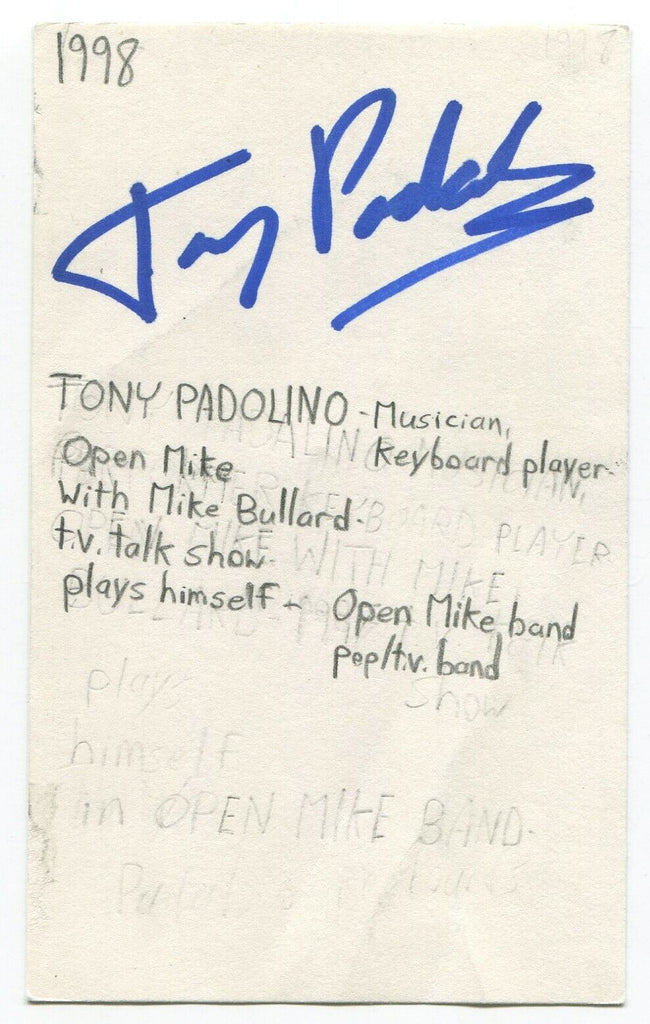 1998
1998
Tony Padal
TONY PADOLINO - Musician,
Keyboard player.
Open Mike
With Mike Bullard.
t.v. talk show.
plays himself - Open Mike band
pop/t.v. band
KEYBOARD PLAYER
OPEN MIKE WITH MIKE
BULLARD - 1998 talk
show
plays
himself
in OPEN MIKE BAND.